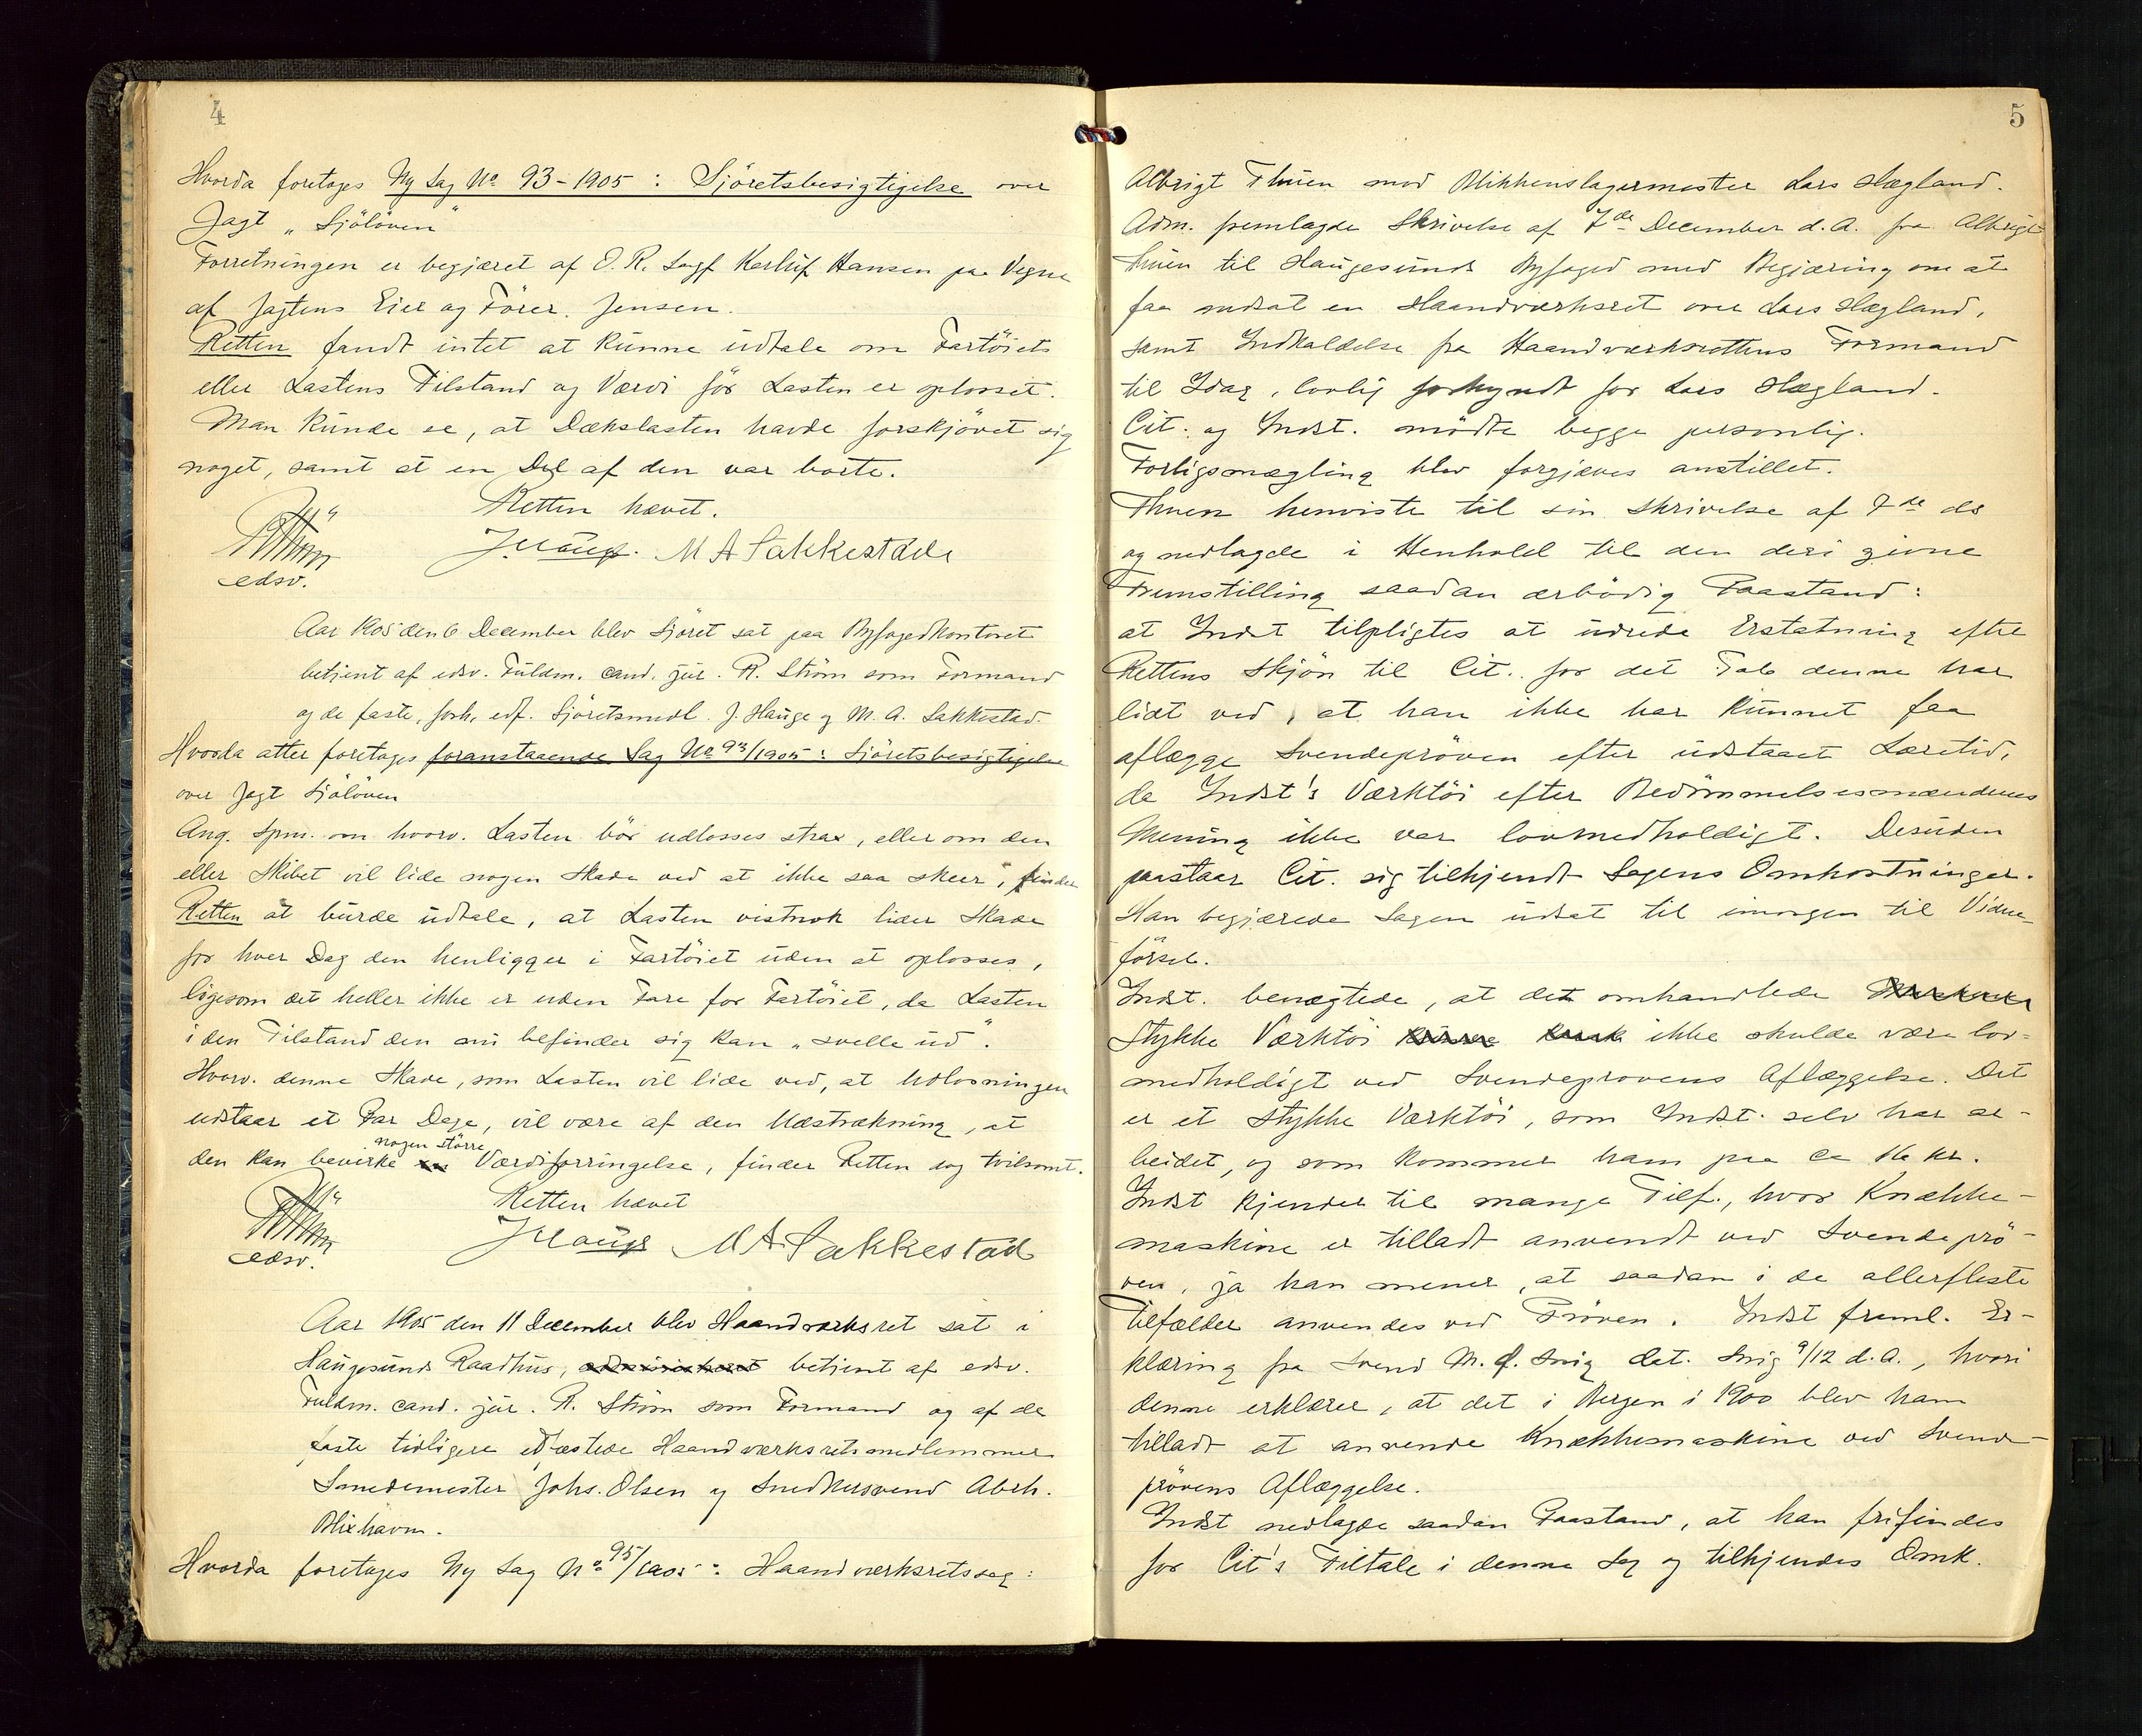 4
Hvorda foretoges Ny Sag No 93-1905: Sjöretsbesigtigelse over
Jagt „Sjölöven"
Forretningen er begjæret af O. R. Sagf Karluf Hansen paa Vegne
af Jagtens Eier og Förer. Jensen.
Retten fandt intet at kunne udtale om Fartöiets
eller Lastens Tilstand og Værdi för Lasten er oplosset.
Man kunde se, at Dækslasten havde forskjövet sig
noget, samt at en Del af den var borte.
Retten hævet.
J. Hauge. M A Sakkestad
edsv.
Aar 1905 den 6 December blev Sjöret sat paa Byfogedkontoret
betjent af edsv. Fuldm. cand. jur. R. Ström som Formand
og de faste, forh. edf. Sjöretsmedl. J. Hauge og M. A. Sakkestad.
Hvorda atter foretoges foranstaaende Sag No 93/1905: Sjöretsbesigtigelse
over Jagt Sjölöven
Ang. Spm. om hvorv. Lasten bör udlosses strax, eller om den
eller Skibet vil lide nogen Skade ved at ikke saa skeer, finder
Retten at burde udtale, at Lasten vistnok lider Skade
for hver Dag den henligger i Fartöiet uden at oplosses,
ligesom det heller ikke er uden Fare for Fartöiet, da Lasten
i den Tilstand den nu befinder sig kan „svelle ud".
Hvorv. denne Skade, som Lasten vil lide ved, at Udlosningen
udstaar et Par Dage, vil være af den Udstrækning, at
den kan bevirke nogen större Værdiforringelse, finder Retten dog tvilsomt.
Retten hævet
J Hauge M A Sakkestad
edsv.
Aar 1905 den 11 December blev Haandværksret sat i
Haugesunds Raadhus, betjent af edsv.
Fuldm. cand. jur. R. Ström som Formand og af de
faste tidligere edfæstede Haandværksretsmedlemmer
Smedemester Johs. Olsen og Snedkersvend Abrh.
Blixhavn.
Hvorda foretoges Ny Sag No 95/1905: Haandværksretssag:
5
Albrigt Thuen mod Blikkenslagermester Lars Hægland.
Adm. fremlagde Skrivelse af 7de December d.A. fra Albrigt
Thuen til Haugesunds Byfoged med Begjæring om at
faa nedsat en Haandværksret over Lars Hægland,
samt Indkaldelse fra Haandværksrettens Formand
til Idag, lovlig forkyndt for Lars Hægland.
Cit. og Indst. mödte begge personlig.
Forligsmægling blev forgjæves anstillet.
Thuen henviste til sin Skrivelse af 7de ds
og nedlagde i Henhold til den deri givne
Fremstilling saadan ærbödig Paastand:
at Indst tilpligtes at udrede Erstatning efter
Rettens Skjön til Cit. for det Tab denne har
lidt ved, at han ikke har kunnet faa
aflægge Svendepröven efter udstaaet Læretid,
da Indst's Værktöi efter Bedömmelsesmændenes
Mening ikke var lovmedholdigt. Desuden
paastaar Cit. sig tilkjendt Sagens Omkostninger.
Han begjærede Sagen udsat til imorgen til Vidne-
försel.
Indst. benægtede, at det omhandlede
Stykke Værktöi ikke skulde være lov-
medholdigt ved Svendeprövens Aflæggelse. Det
er et Stykke Værktöi, som Indst. selv har ar-
beidet, og som kommer ham paa ca 16 kr.
Indst kjender til mange Tilf., hvor Knække-
maskine er tilladt anvendt ved Svendeprö-
ven, ja han mener, at saadan i de allerfleste
Tilfælder anvendes ved Pröven. Indst freml. Er-
klæring fra Svend M. J. Snig dat. Snig 9/12 d.A., hvori
denne erklærer, at det i Bergen i 1900 blev ham
tilladt at anvende Knækkemaskine ved Svende-
prövens Aflæggelse.
Indst nedlagde saadan Paastand, at han frifindes
for Cit's Tiltale i denne Sag og tilkjendes Omk.